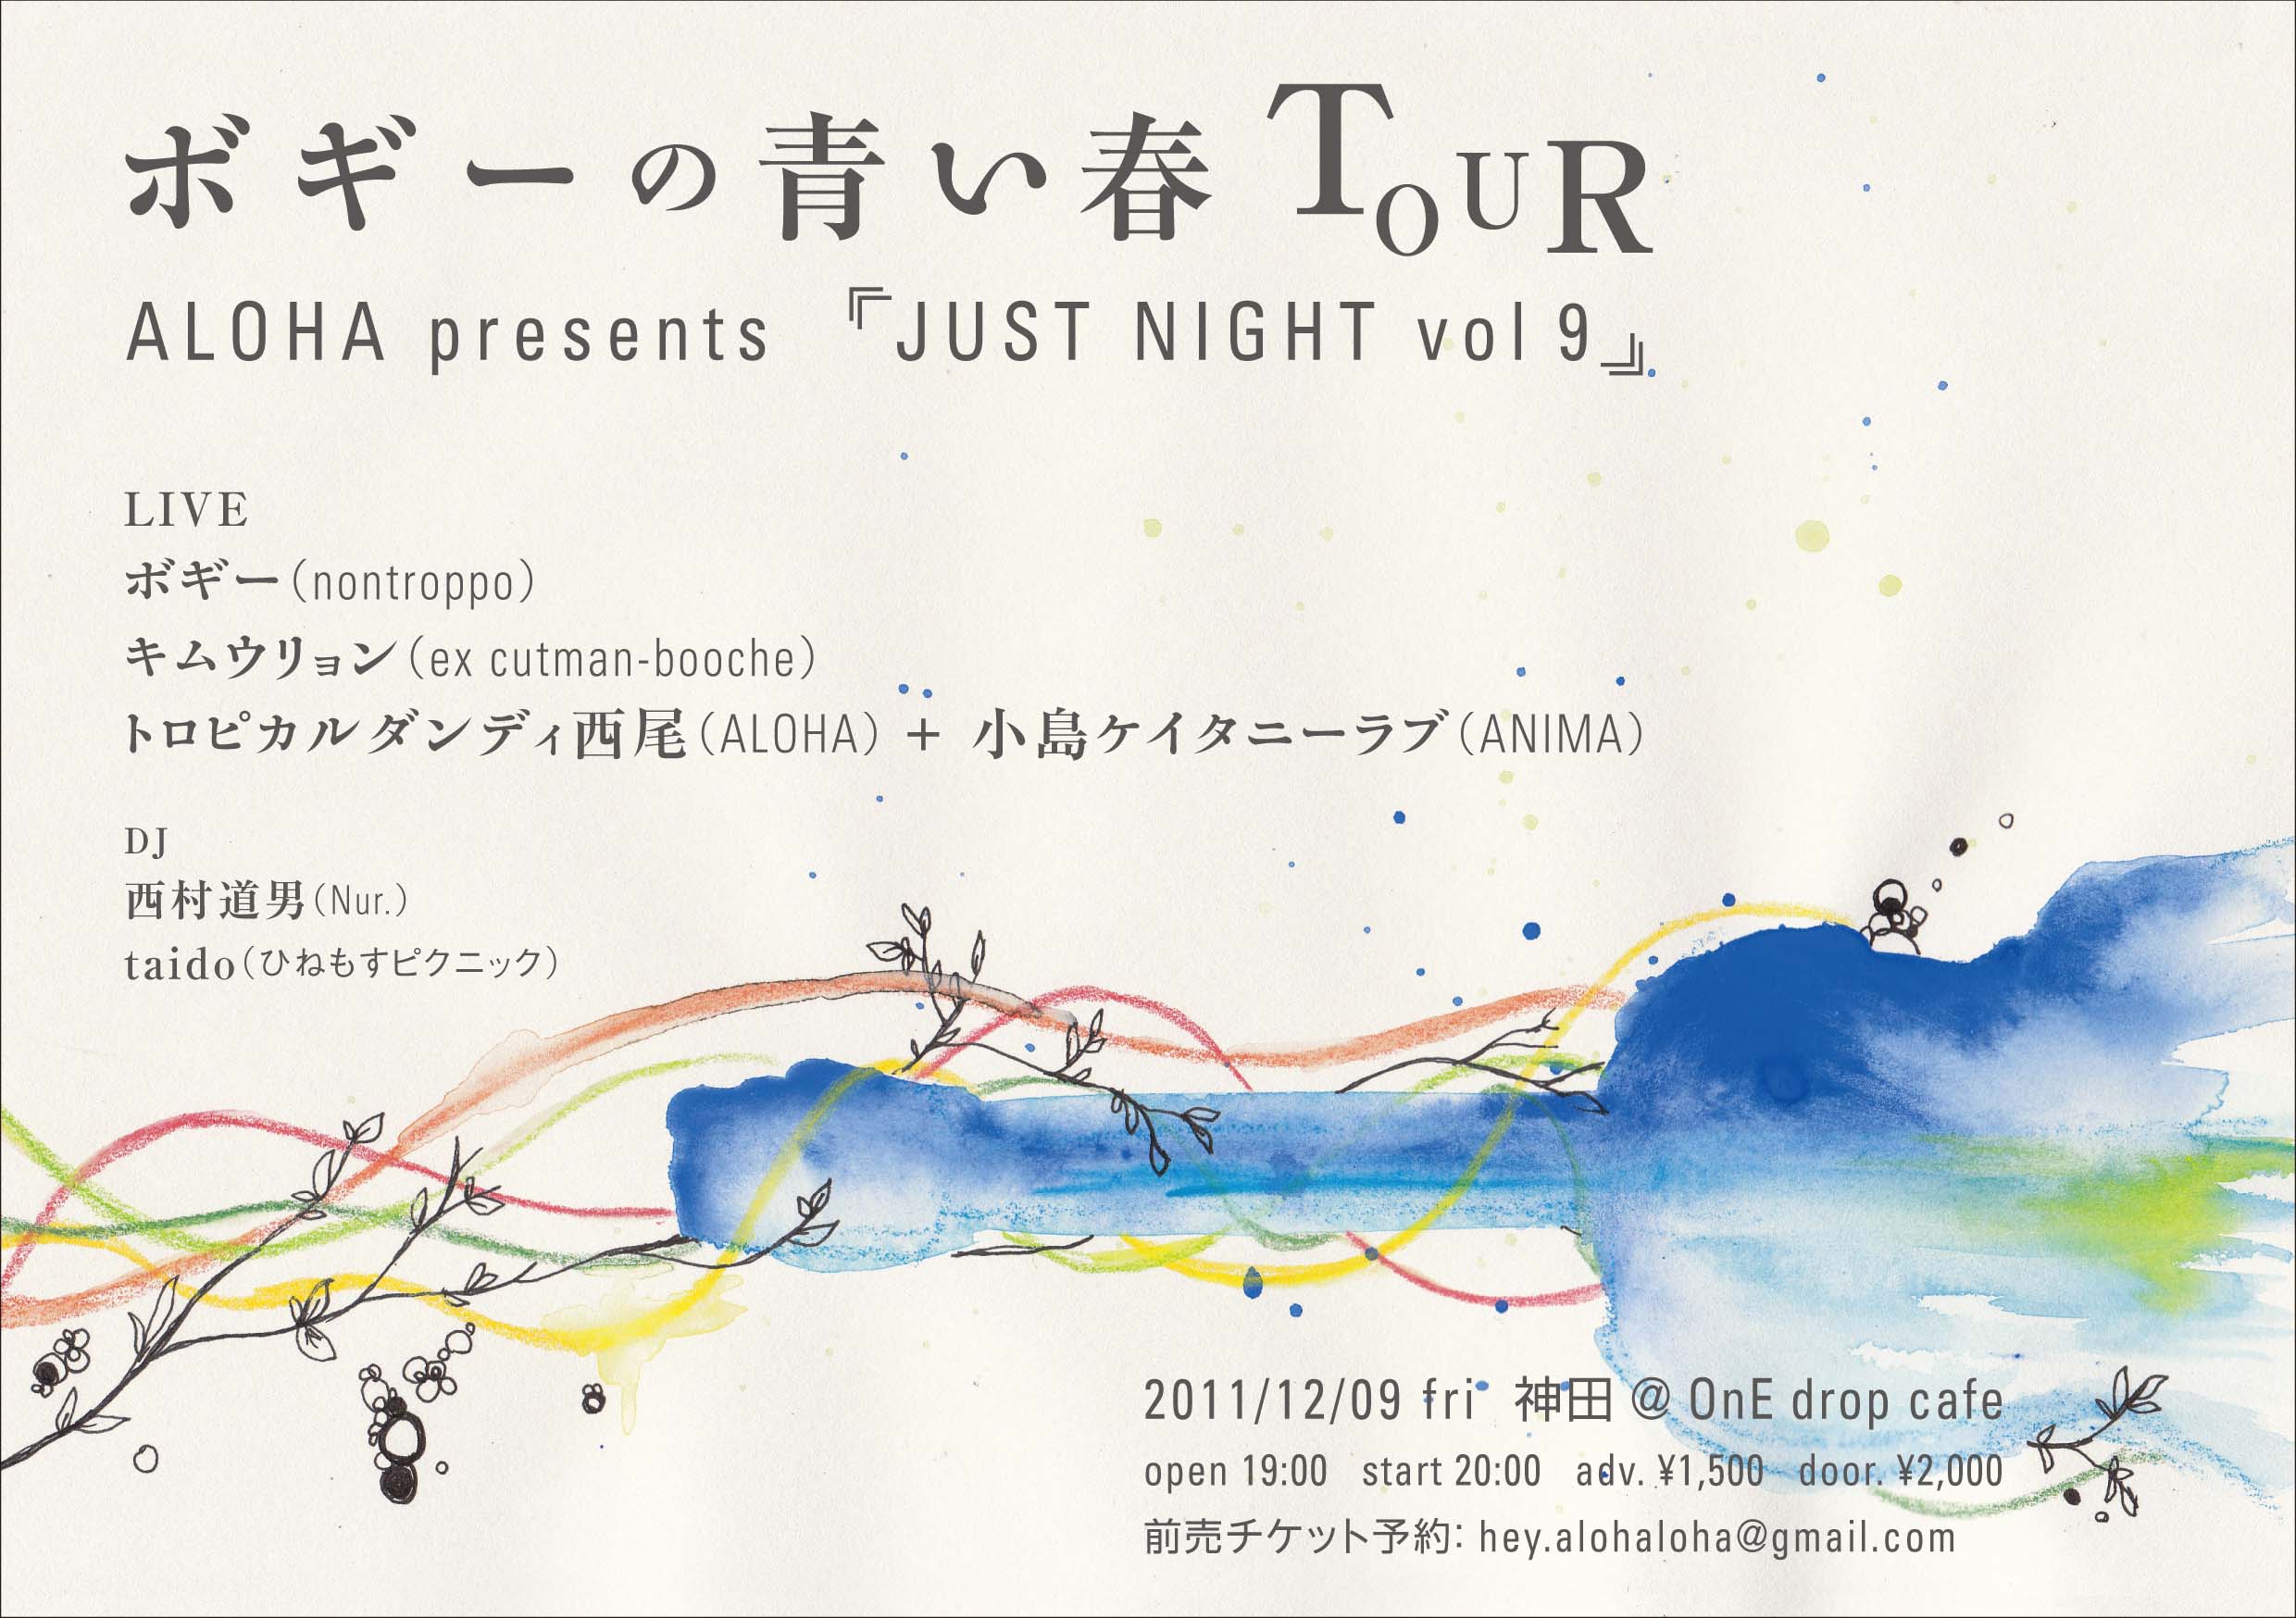 ボギーの青い春 TOUR
ALOHA presents 『JUST NIGHT vol 9』
LIVE
ボギー（nontroppo）
キムウリョン（ex cutman-booche）
トロピカルダンディ西尾（ALOHA） + 小島ケイタニーラブ（ANIMA）
DJ
西村道男（Nur.）
taido（ひねもすピクニック）
2011/12/09 fri 神田 @ OnE drop cafe
open 19:00 start 20:00 adv. ¥1,500 door. ¥2,000
前売チケット予約: hey.alohaloha@gmail.com